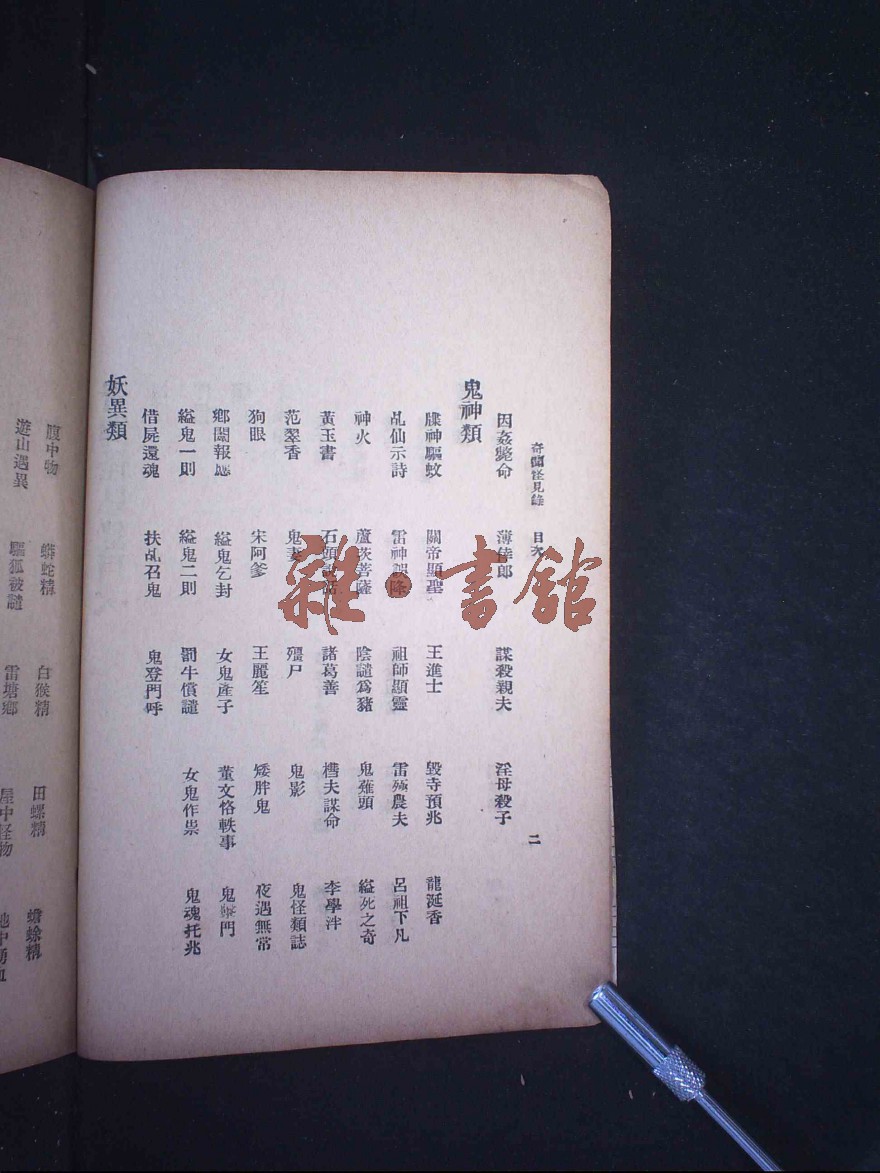 奇聞怪見錄 目次 二
因姦斃命 薄倖郎 謀殺親夫 淫母殺子
鬼神類
牒神驅蚊 關帝顯聖 王進士 毀寺預兆 龍涎香
乩仙示詩 雷神誤降 祖師顯靈 雷殛農夫 呂祖下凡
神火 蘆菼菩薩 陰譴爲豬 鬼薙頭 縊死之奇
黃玉書 石頭 諸葛善 槽夫謀命 李學泮
范翠香 鬼妻 殭尸 鬼影 鬼怪類誌
狗眼 宋阿爹 王麗笙 矮胖鬼 夜遇無常
鄉闈報應 縊鬼乞封 女鬼產子 董文恪軼事 鬼門
縊鬼一則 縊鬼二則 罰牛償譴 女鬼作祟 鬼魂托兆
借屍還魂 扶乩召鬼 鬼登門呼
妖異類
腹中物 蟒蛇精 白猴精 田螺精 蟾蜍精
遊山遇異 驅狐被譴 雷塘鄉 屋中怪物 池中湧血
雜·書館